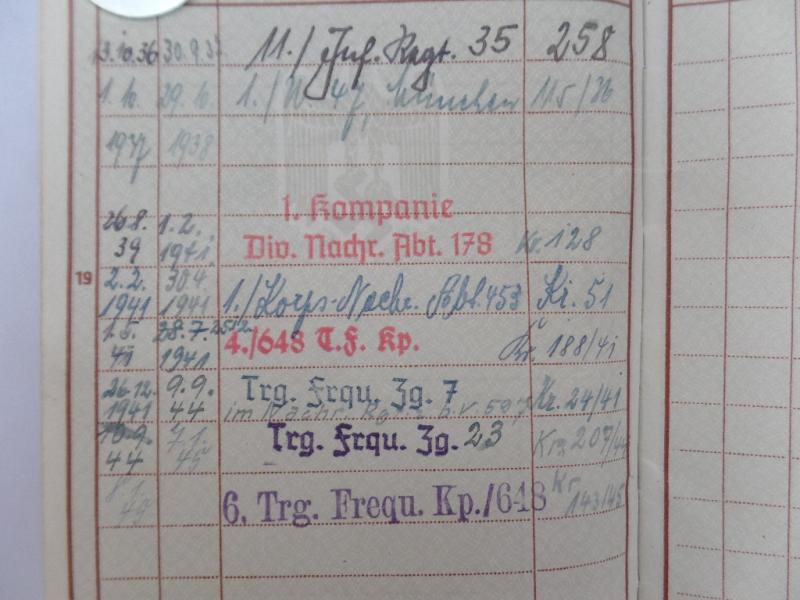 13.10.36 30.9.37 11./Inf. Regt. 35 258
1.10. 29.10. 1./N 47, München 115/36
1937 1938
26.8. 1.2. 1. Kompanie
39 1941 Div. Nachr. Abt. 178 Kr. 128
19
2.2. 30.4.
1941 1941 1./Korps-Nachr. Abt. 453 Kr. 51
1.5. 28.7. 25.12.
41 1941 4./648 T.F. Kp. Kr. 188/41
26.12. 9.9. Trg. Frqu. Zg. 7 Kr. 24/41
1941 44 im Nachr. Rg. z.b.V. 597
10.9. 7.1. Trg. Frqu. Zg. 23 Kr. 207/44
44 45
8.1. 6. Trg. Frequ. Kp./648 Kr.
45 143/45